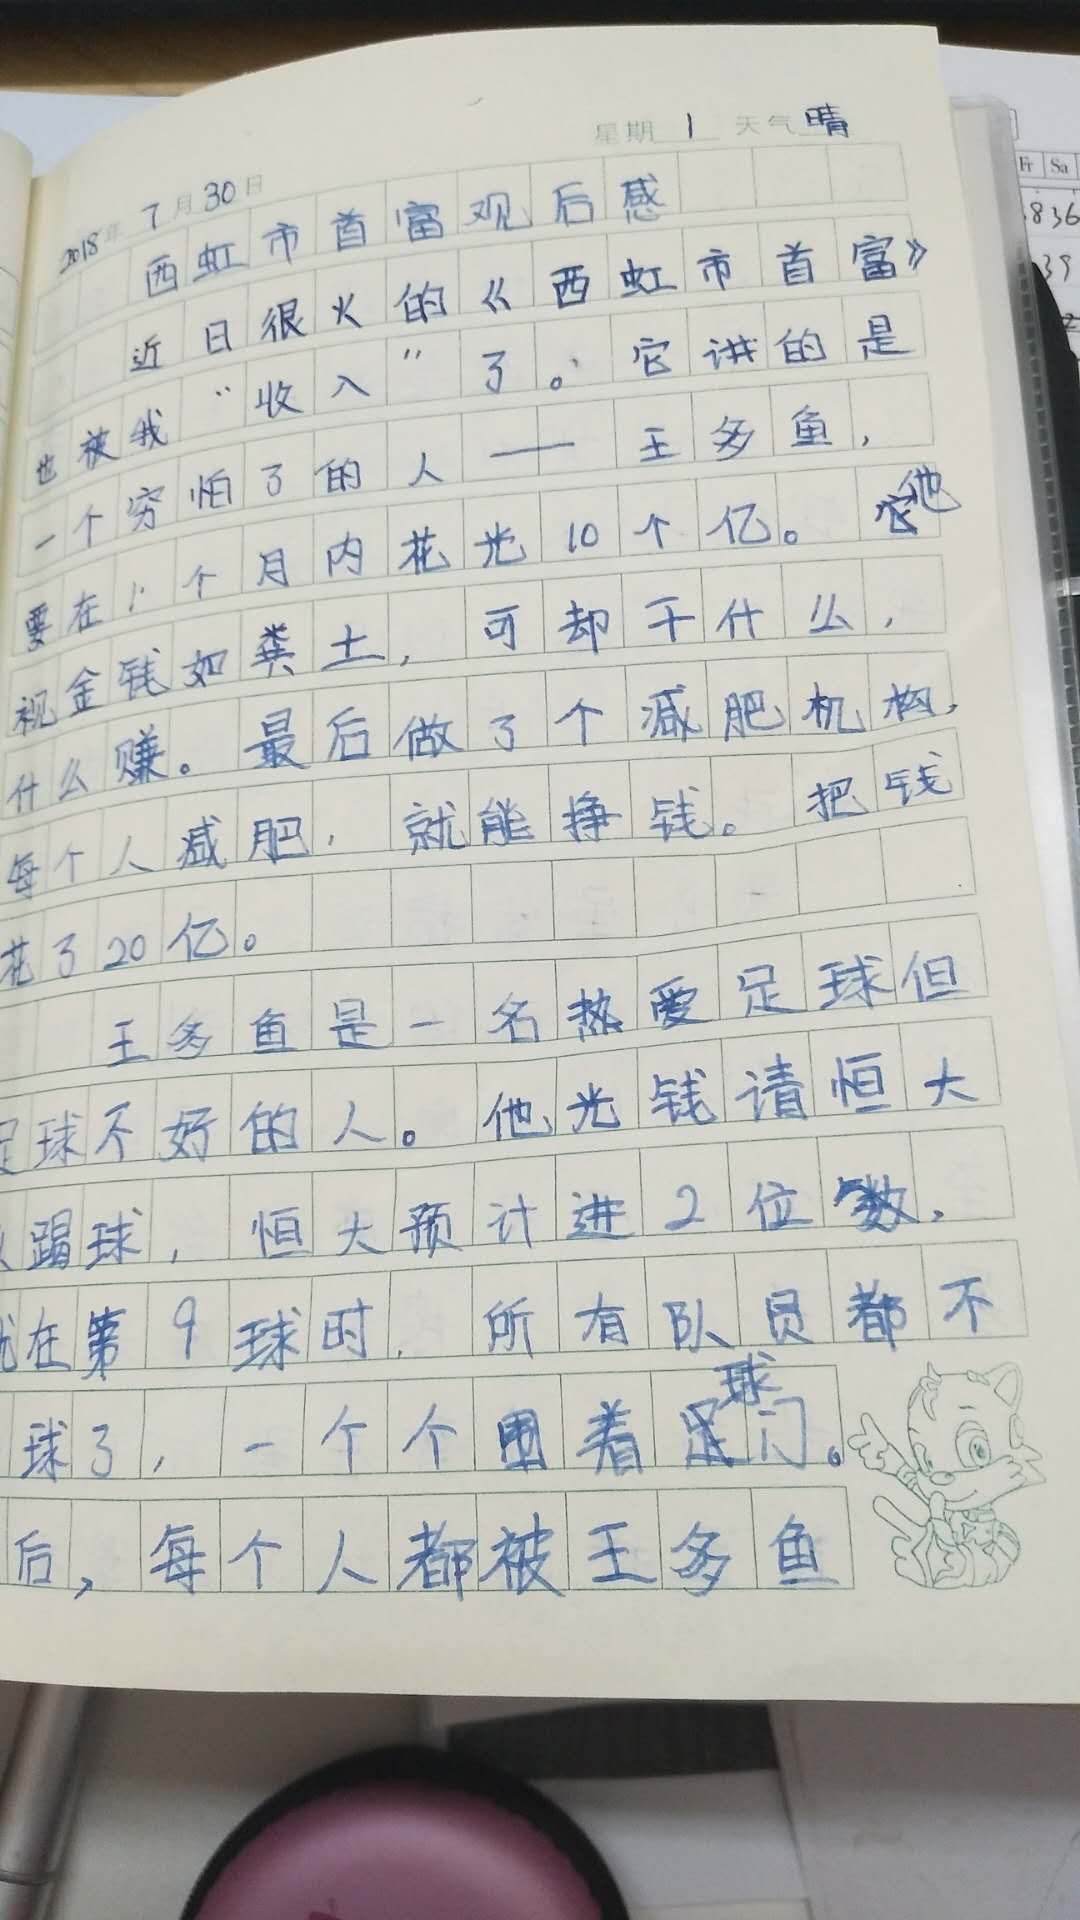 2018年7月30日 星期1 天气晴
西虹市首富观后感
近日很火的《西虹市首富》
也被我“收入”了。它讲的是
一个穷怕了的人——王多鱼，
要在1个月内花光10个亿。他
视金钱如粪土，可却干什么，
什么赚。最后做了个减肥机构，
每个人减肥，就能挣钱。把钱
花了20亿。
王多鱼是一名热爱足球但
足球不好的人。他光钱请恒大
踢球，恒大预计进2位数，
在第9球时，所有队员都不
球了，一个个围着球门。
后，每个人都被王多鱼
Fr Sa
836
39